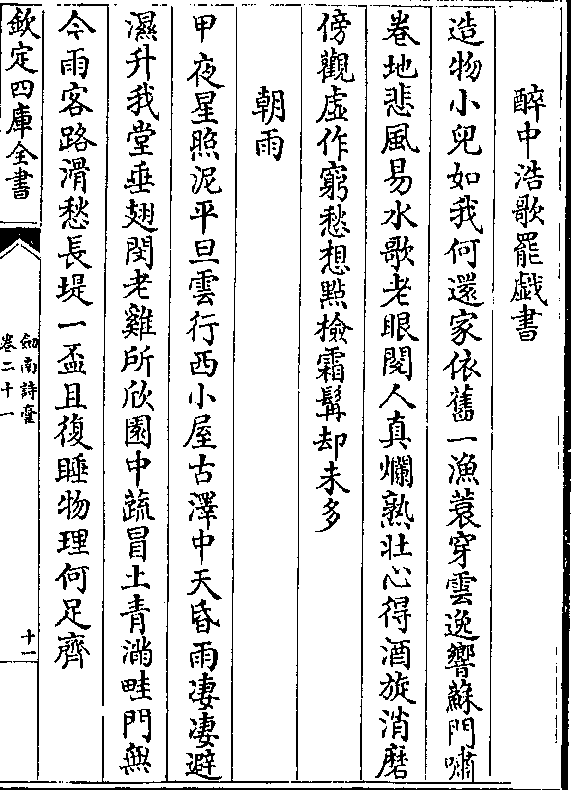 醉中浩歌罷戯書
造物小兒如我何還家依舊一漁蓑穿雲逸響蘇門嘯
卷地悲風易水歌老眼閱人真爛熟壯心得酒旋消磨
傍觀虛作窮愁想點檢霜髯却未多
朝雨
甲夜星照泥平旦雲行西小屋古澤中天昏雨凄凄避
濕升我堂垂翅閔老雞所欣園中蔬冒土青滿畦門無
今雨客路滑愁長堤一盃且復睡物理何足齊
欽定四庫全書
劔南詩藳
卷二十一
十一